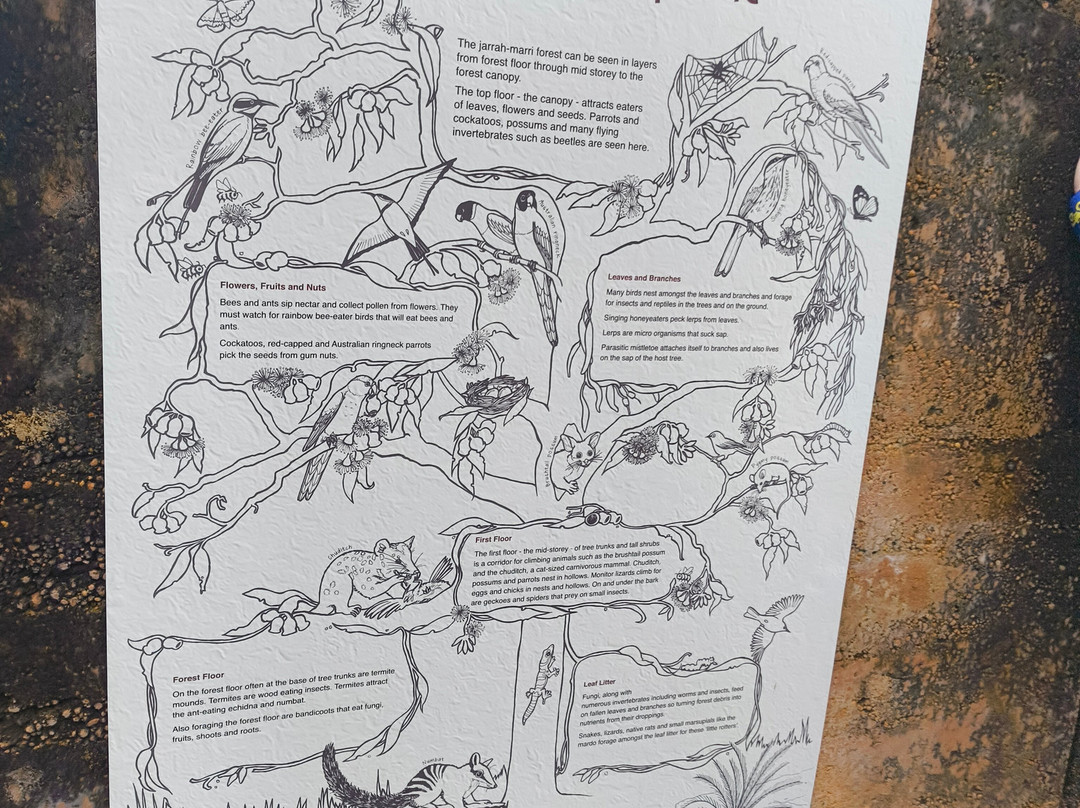 The jarrah-marri forest can be seen in layers
from forest floor through mid storey to the
forest canopy.
The top floor - the canopy - attracts eaters
of leaves, flowers and seeds. Parrots and
cockatoos, possums and many flying
invertebrates such as beetles are seen here.
Rainbow bee-eater
Red-capped parrot
Australian ringneck
Flowers, Fruits and Nuts
Bees and ants sip nectar and collect pollen from flowers. They
must watch for rainbow bee-eater birds that will eat bees and
ants.
Cockatoos, red-capped and Australian ringneck parrots
pick the seeds from gum nuts.
Leaves and Branches
Many birds nest amongst the leaves and branches and forage
for insects and reptiles in the trees and on the ground.
Singing honeyeaters peck lerps from leaves.
Lerps are micro organisms that suck sap.
Parasitic mistletoe attaches itself to branches and also lives
on the sap of the host tree.
Brushtail possum
Pygmy possum
Chuditch
First Floor
The first floor - the mid-storey - of tree trunks and tall shrubs
is a corridor for climbing animals such as the brushtail possum
and the chuditch, a cat-sized carnivorous mammal. Chuditch,
possums and parrots nest in hollows. Monitor lizards climb for
eggs and chicks in nests and hollows. On and under the bark
are geckoes and spiders that prey on small insects.
Forest Floor
On the forest floor often at the base of tree trunks are termite
mounds. Termites are wood eating insects. Termites attract
the ant-eating echidna and numbat.
Also foraging the forest floor are bandicoots that eat fungi,
fruits, shoots and roots.
Leaf Litter
Fungi, along with
numerous invertebrates including worms and insects, feed
on fallen leaves and branches so turning forest debris into
nutrients from their droppings.
Snakes, lizards, native rats and small marsupials like the
mardo forage amongst the leaf litter for these 'little rotters'.
Numbat